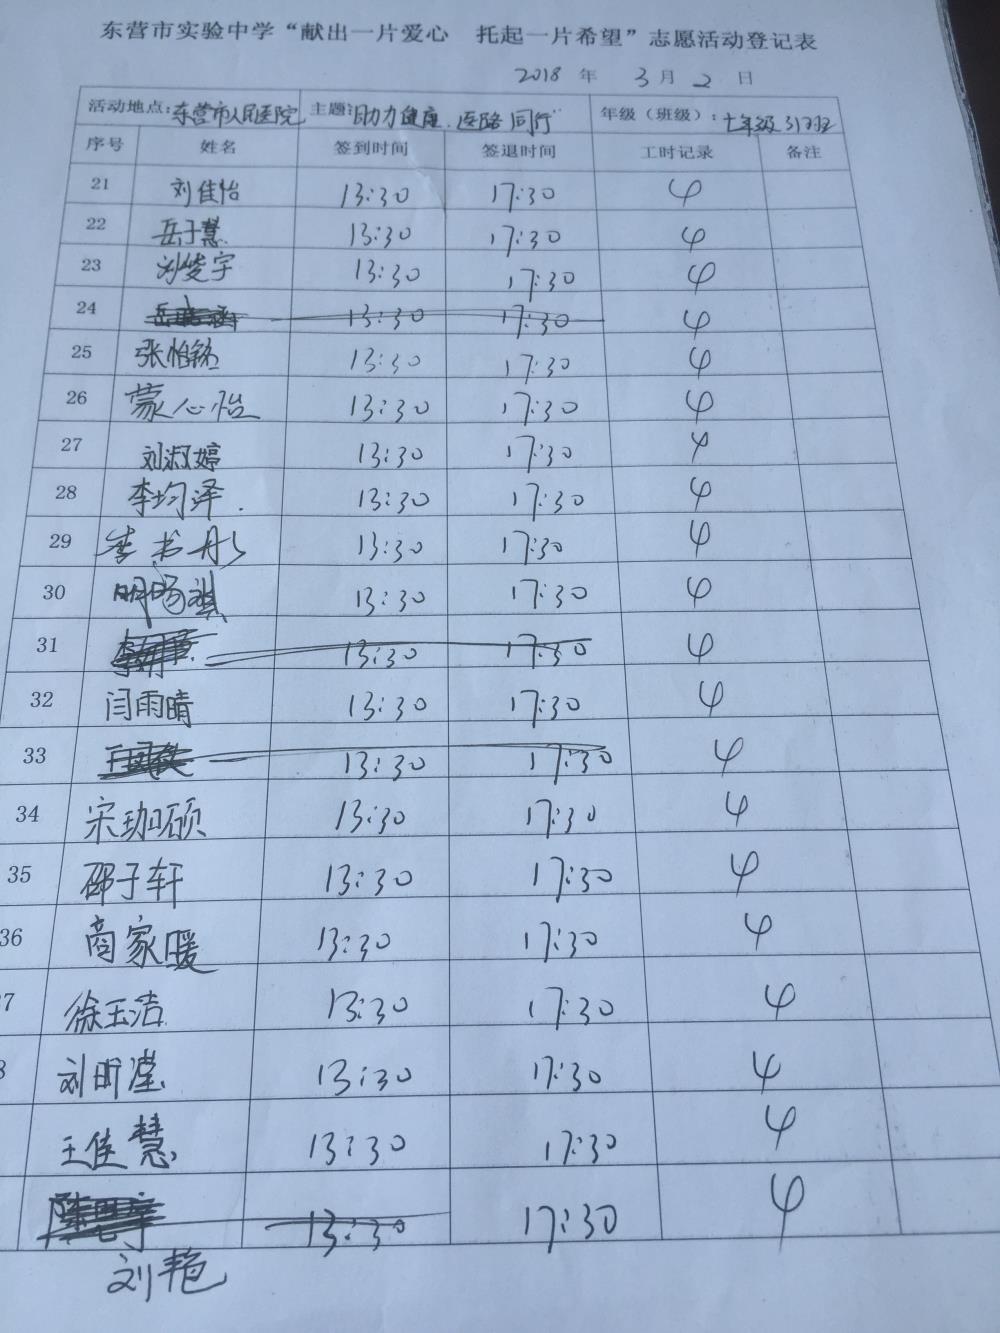 东营市实验中学“献出一片爱心 托起一片希望”志愿活动登记表
2018 年 3 月 2 日
活动地点：东营市人民医院 主题：助力健康.医路同行 年级（班级）：七年级31班
序号 姓名 签到时间 签退时间 工时记录 备注
21 刘佳怡 13:30 17:30 4
22 岳子慧 13:30 17:30 4
23 刘俊宇 13:30 17:30 4
24 13:30 17:30 4
25 张怡铭 13:30 17:30 4
26 蒙心怡 13:30 17:30 4
27 刘淑婷 13:30 17:30 4
28 李均泽. 13:30 17:30 4
29 李书彤 13:30 17:30 4
30 明旸祺 13:30 17:30 4
31 13:30 17:30 4
32 闫雨晴 13:30 17:30 4
33 13:30 17:30 4
34 宋珈硕 13:30 17:30 4
35 邵子轩 13:30 17:30 4
36 商家暖 13:30 17:30 4
7 徐玉洁 13:30 17:30 4
8 刘昕滢 13:30 17:30 4
王佳慧 13:30 17:30 4
13:30 17:30 4
刘艳